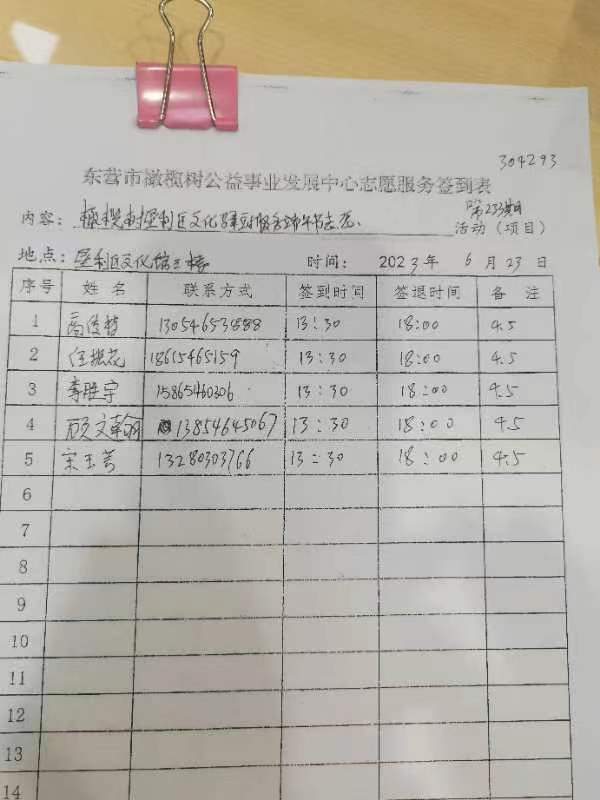 304293
东营市橄榄树公益事业发展中心志愿服务签到表
第233期
内容：橄榄树垦利区文化 活动（项目）
地点：垦利区文化馆三楼 时间：2023年 6月23日
序号 姓名 联系方式 签到时间 签退时间 备注
1 13054653888 13:30 18:00 4.5
2 任振花 18615465159 13:30 18:00 4.5
3 李胜宇 15865460306 13:30 18:00 4.5
4 顾文翰 13854645067 13:30 18:00 4.5
5 宋玉芳 13280303766 13:30 18:00 4.5
6
7
8
9
10
11
12
13
14